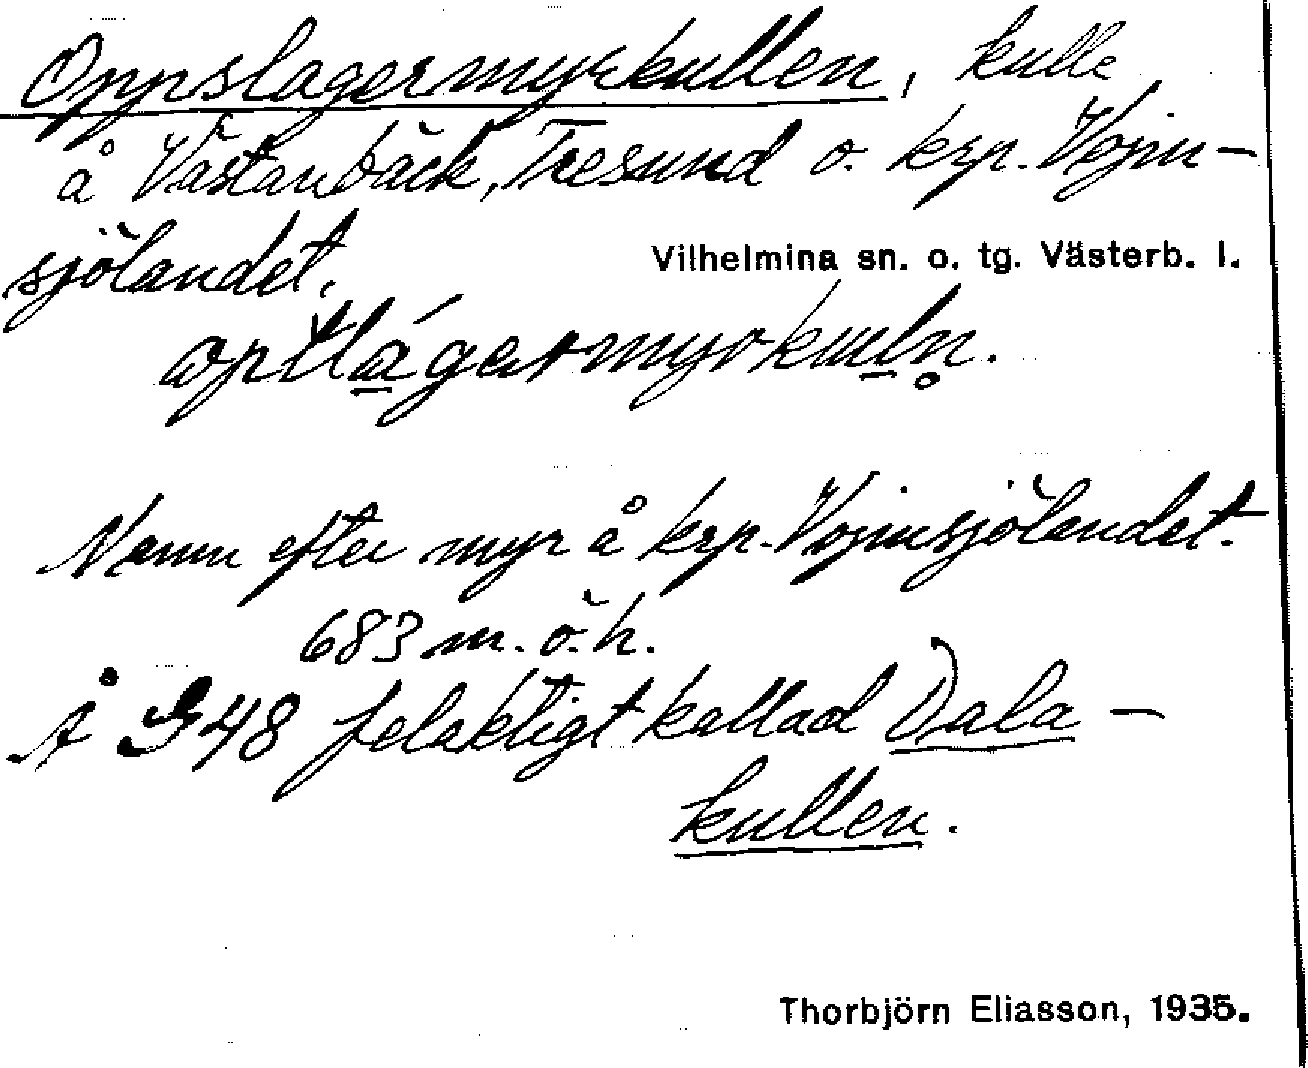 Oppslagermyrkullen, kulle
å Västanbäck, Tresund o. krp. Vojm-
sjölandet.
Vilhelmina sn. o. tg. Västerb. l.
Namn efter myr å krp. Vojmsjölandet.
683 m. ö. h.
Å G 48 felaktigt kallad Dala-
kullen.
Thorbjörn Eliasson, 1935.